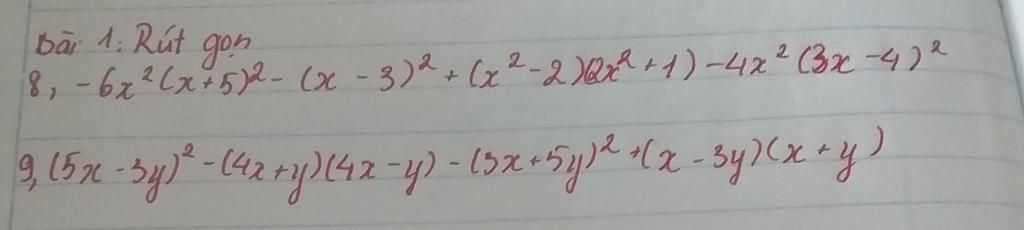 Bài 1: Rút gọn
8, -6x²(x+5)² - (x - 3)² + (x² - 2)(2x² + 1) - 4x² (3x - 4)²
9, (5x - 3y)² - (4x + y)(4x - y) - (3x + 5y)² + (x - 3y)(x + y)